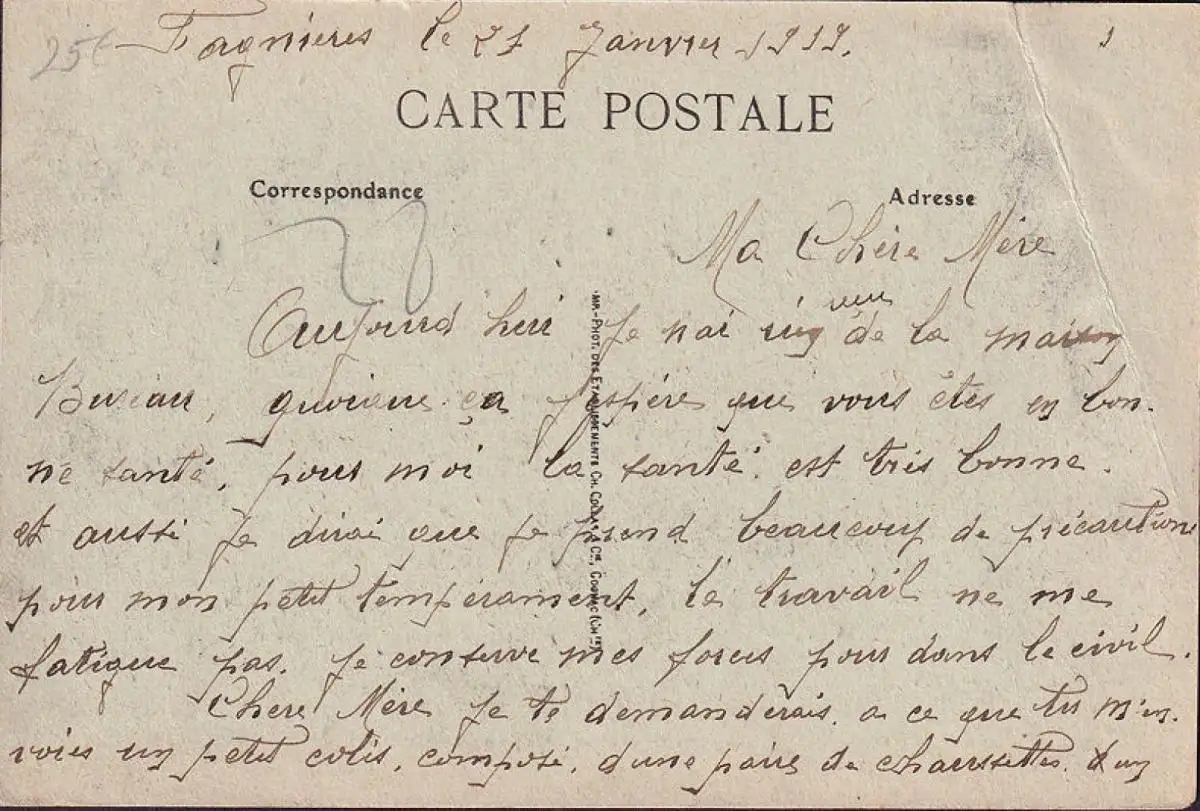 25c
Fagnières le 21 Janvier 1919.
CARTE POSTALE
Correspondance
Adresse
Ma Chère Mère
Aujourd hui Je nai rien veu de la maison
quoique ça J'espère que vous êtes en bon.
ne santé, pour moi la santé est très bonne.
et aussi Je dirai que Je prend beaucoup de précautions
pour mon petit tempérament, le travail ne me
fatigue pas. Je conserve mes forces pour dans le civil.
Chere Mère Je te demanderais a ce que tu m'en.
voies un petit colis, composé, d'une paire de chaussettes. d'un
IMP.-PHOT. DES ETABLISSEMENTS CH. COLLAS & Cie, COGNAC (Chte)